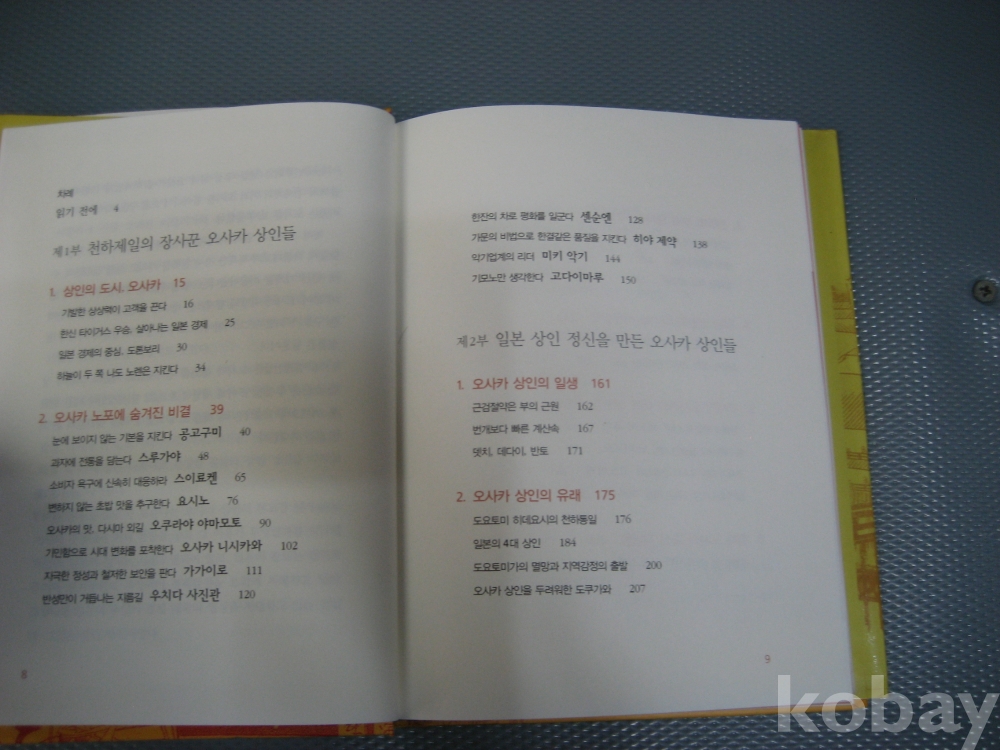 차례
읽기 전에 4
제1부 천하제일의 장사꾼 오사카 상인들
1. 상인의 도시, 오사카 15
기발한 상상력이 고객을 끈다 16
한신 타이거스 우승, 살아나는 일본 경제 25
일본 경제의 중심, 도톤보리 30
하늘이 두 쪽 나도 노렌은 지킨다 34
2. 오사카 노포에 숨겨진 비결 39
눈에 보이지 않는 기본을 지킨다 공고구미 40
과자에 전통을 담는다 스루가야 48
소비자 욕구에 신속히 대응하라 스이료켄 65
변하지 않는 초밥 맛을 추구한다 요시노 76
오사카의 맛, 다시마 외길 오쿠라야 야마모토 90
기민함으로 시대 변화를 포착한다 오사카 니시카와 102
지극한 정성과 철저한 보안을 판다 가가이로 111
반성만이 거듭나는 지름길 우치다 사진관 120
8
한잔의 차로 평화를 일군다 센슌엔 128
가문의 비법으로 한결같은 품질을 지킨다 히야 제약 138
악기업계의 리더 미키 악기 144
기모노만 생각한다 고다이마루 150
제2부 일본 상인 정신을 만든 오사카 상인들
1. 오사카 상인의 일생 161
근검절약은 부의 근원 162
번개보다 빠른 계산속 167
뎃치, 데다이, 반토 171
2. 오사카 상인의 유래 175
도요토미 히데요시의 천하통일 176
일본의 4대 상인 184
도요토미가의 멸망과 지역감정의 출발 200
오사카 상인을 두려워한 도쿠가와 207
9
kobay